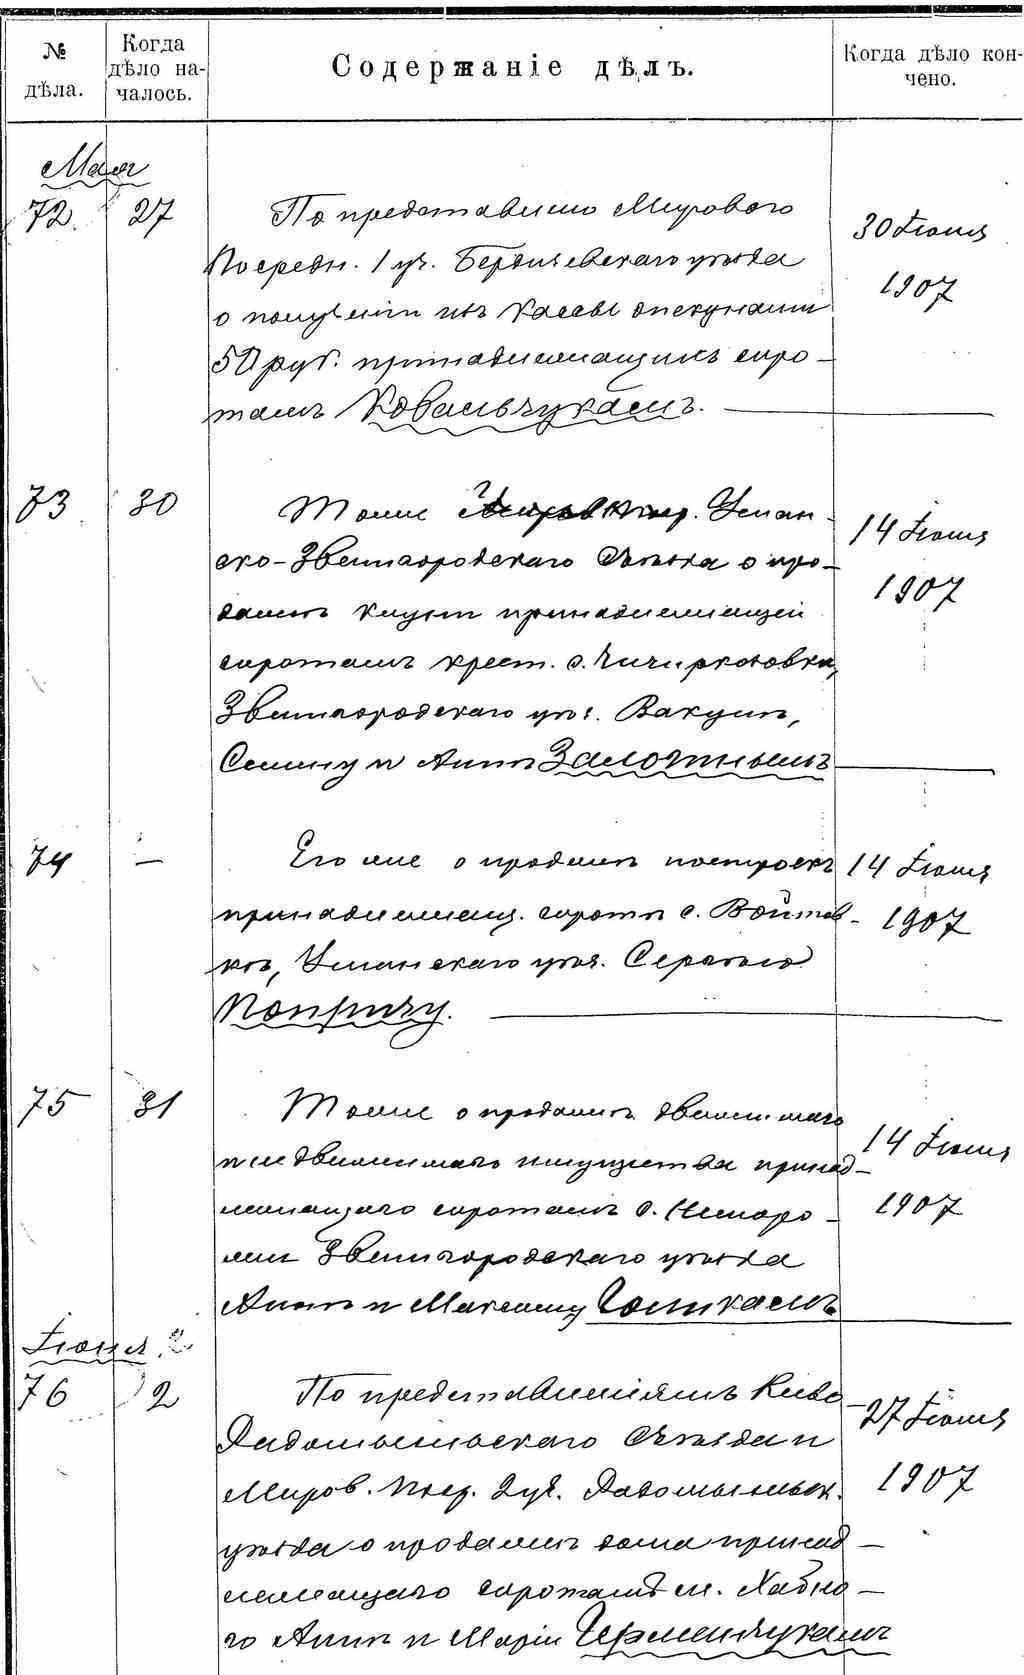 № дѣла.
Когда дѣло на-
чалось.
Содержаніе дѣлъ.
Когда дѣло кон-
чено.
Мая
72. 27
По представленію Мирового
Посредн. 1 уч. Бердичевскаго уѣзда
о полученіи изъ кассы опекунами
50 руб. принадлежащихъ сиро-
тамъ Ковальчукамъ.
30 Іюня
1907
73 30
Тоже Миров. Поср. Уман-
ско-Звенигородскаго Съѣзда о про-
дажѣ клуни принадлежащей
сиротамъ крест. с. Чичиркозовки,
Звенигородскаго уѣз. Вакулѣ,
Семену и Аннѣ Залотнымъ
14 Іюня
1907
74 —
Его же о продажѣ построекъ
принадлежащ. сиротѣ с. Войтов-
кѣ, Уманскаго уѣз. Сергѣю
14 Іюня
1907
75 31
Тоже о продажѣ движимаго
и недвижимаго имущества принад-
лежащаго сиротамъ с. Неморо-
жи Звенигородскаго уѣзда
Аннѣ и Максиму
14 Іюня
1907
Іюня 2
76 2
По представленіямъ Кіево-
Радомысльскаго Съѣзда и
Миров. Поср. 2 уч. Радомысльск.
уѣзда о продажѣ дома принад-
лежащаго сиротамъ м. Хабно-
го Аннѣ и Маріи Черменчукамъ
27 Іюня
1907